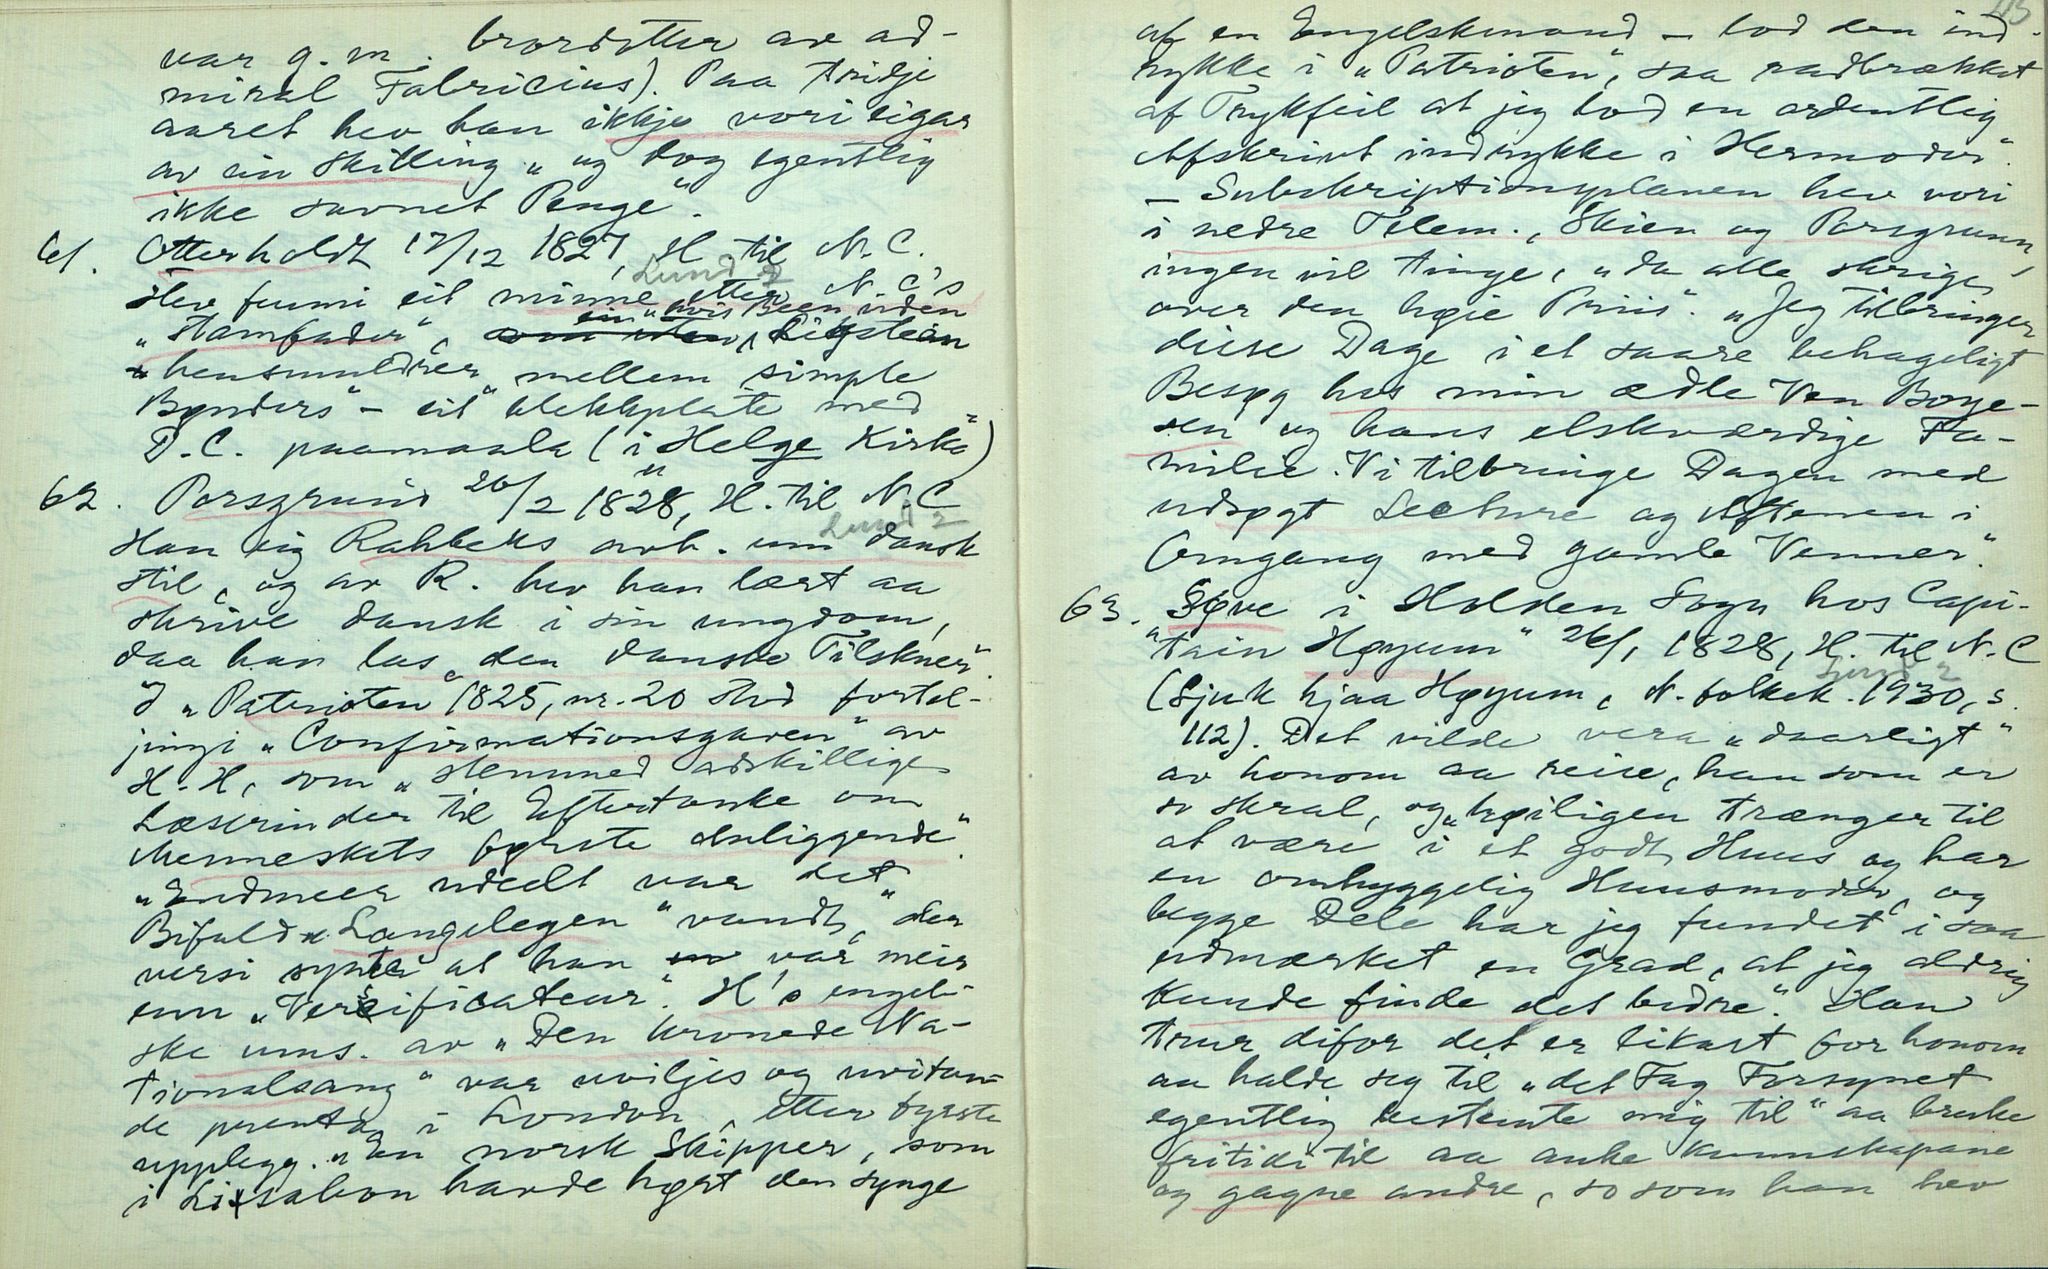 var g. m. brordotter av ad-
miral Fabricius). Paa tridje
aaret hev han ikkje vori eigar
av ein skilling „og dog egentlig
ikke savnet Penge“.
61. Otterholdt 17/12 1827, H til N. C.
Lund 2
Hev funni eit minne etter N. C's
„Stamfader“, ein „hvis Been uden Ligsteen
hensmuldrer mellem simple
Bønders“ – eit blekkplate med
D. C. paamaala (i Helge Kirke“)
62. Porsgrund 26/2 1828, H. til N. C
Lund 2
Han eig Rahbeks arb. um dansk
stil, og av R. hev han lært aa
skrive dansk i sin ungdom,
daa han las „den danske Tilskuer“.
I „Patrioten“ 1825, nr. 20 stod fortel-
jingi „Confirmationsgaven“ av
H. H, som „stemned adskillige
Læserinder til Eftertanke om
Menneskets første Anliggende“.
„Endmeer udeelt var det
Bifald“ „Langelegen“ vandt, „den
versi synte at han var meir
enn „Versificateur“. H's engel-
ske ums. av „Den kronede Na-
tionalsang“ var uviljes og uvitan-
de prenta i London, etter fyrste
upplegg. „En norsk Skipper, som
i Lissabon havde hørt den synge
af en Engelskmand – lod den ind-
rykke i „Patrioten“, saa radbrækket
af Trykfeil at jeg lod en ordentlig
Afskrivt indrykke i Hermoder“.
– Subskriptionsplanen hev vori
i nedre Telem., Skien og Porsgrunn,
ingen vil tinge, „da alle skrige
over den høie Priis“. „Jeg tilbringer
disse Dage i et saare behageligt
Besøg hos min ædle Ven Boye-
sen og hans elskværdige Fa-
milie. Vi tilbringe Dagen med
udsøgt Lecture og Aftenen i
Omgang med gamle Venner“.
63. Søve i Holden Sogn hos Capi-
tain Høyum“ 26/1 1828, H. til N. C
Lund 2
(Sjuk hjaa Høyum, N. folkek. 1930, s.
112). Det vilde vera „daarligt“
av honom aa reise, han som er
so skral, og „høiligen trænger til
at være i et godt Huus og har
en omhyggelig Huusmoder, og
begge Dele har jeg fundet i saa
udmærket en Grad, at jeg aldrig
kunde finde det bedre“. Han
trur difor det er likast for honom
aa halde seg til „det Fag Forsynet
egentlig bestemte mig til“ aa bruke
fritidi til aa auke kunnskapane
og gagne andre, so som han hev